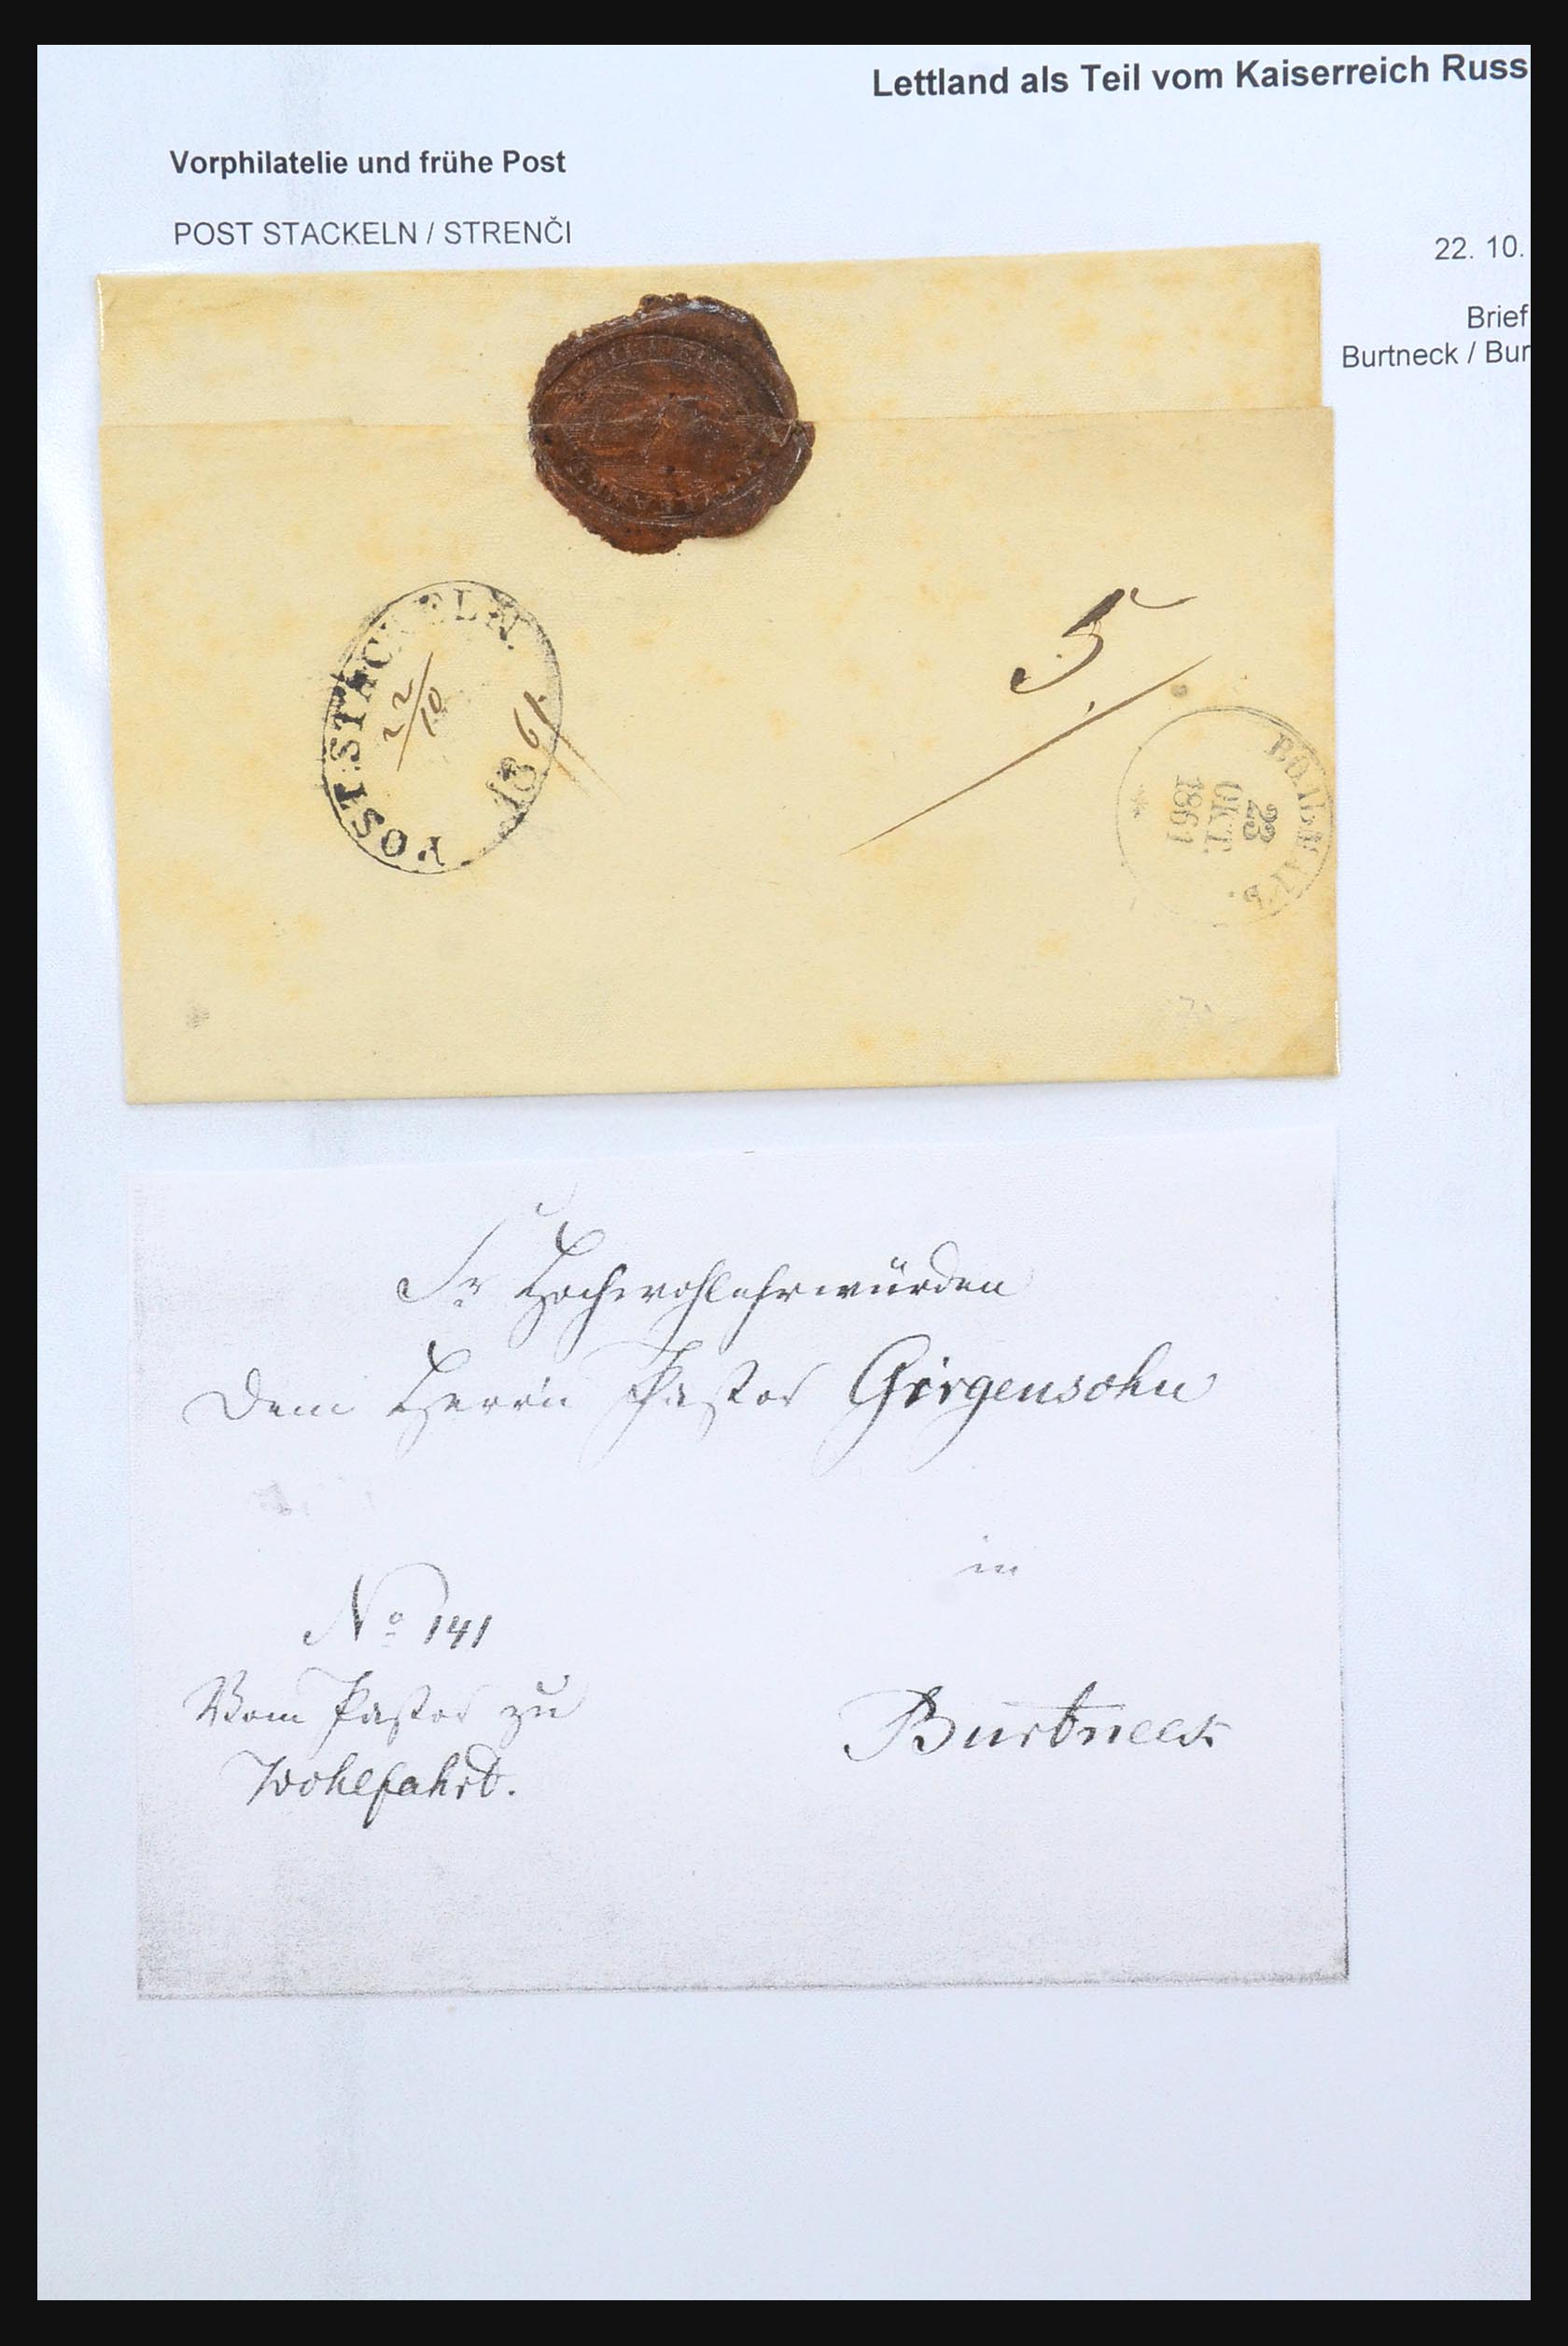 Lettland als Teil vom Kaiserreich Russ
Vorphilatelie und frühe Post
POST STACKELN / STRENČI
22. 10.
Brief
Burtneck / Bur
POST-STACKELN.
22/10
1861.
5
23
ОКТ.
1861
Sr Hochwohlehrwürden
Dem Herrn Pastor Girgensohn
in
No 141
Vom Pastor zu
Wohlfahrt.
Burtneck